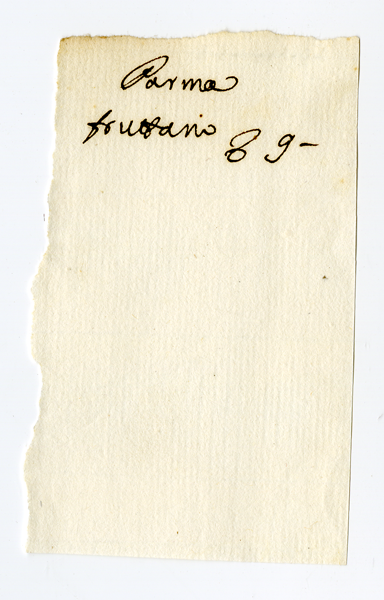 Parma
fruttano 8 9-